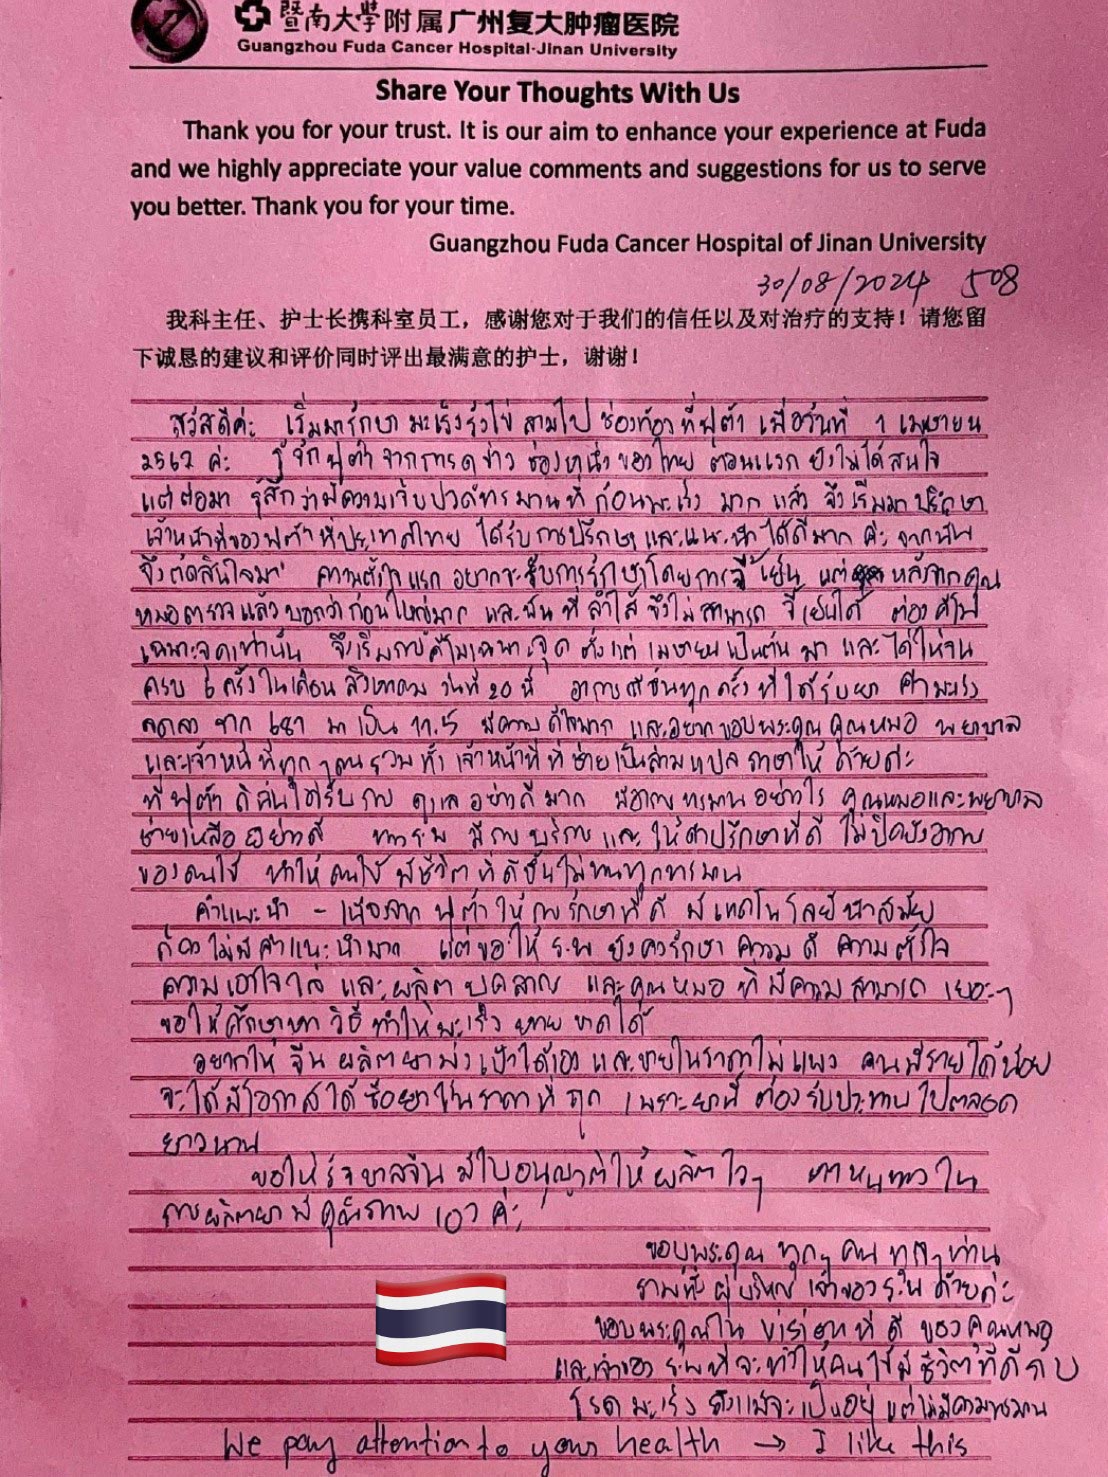 暨南大學附属广州复大肿瘤医院
Guangzhou Fuda Cancer Hospital-Jinan University
Share Your Thoughts With Us
Thank you for your trust. It is our aim to enhance your experience at Fuda
and we highly appreciate your value comments and suggestions for us to serve
you better. Thank you for your time.
Guangzhou Fuda Cancer Hospital of Jinan University
30/08/2024 508
我科主任、护士长携科室员工，感谢您对于我们的信任以及对治疗的支持！请您留
下诚恳的建议和评价同时评出最满意的护士，谢谢！
สวัสดีค่ะ เริ่มมารักษา มะเร็งรังไข่ ลามไป ช่องท้อง ที่ฟูด้า เมื่อวันที่ 1 เมษายน
2567 ค่ะ รู้จักฟูด้า จากการดูข่าว ช่องหนึ่งของไทย ตอนแรก ยังไม่ได้สนใจ
แต่ต่อมา รู้สึกว่ามีความเจ็บปวดทรมานที่ก้อนมะเร็ง มาก แล้ว จึงเริ่มมาปรึกษา
เจ้าหน้าที่ของฟูด้า ที่ประเทศไทย ได้รับการปรึกษา และแนะนำได้ดีมาก ค่ะ จากนั้น
จึงตัดสินใจมา ความตั้งใจแรก อยากจะรับการรักษาโดยการจี้เย็น แต่ หลังจากคุณ
หมอตรวจแล้วบอกว่าก้อนใหญ่มาก และมัน ที่ลำไส้ จึงไม่สามารถ จี้เย็นได้ ต้อง คีโม
เฉพาะจุดเท่านั้น จึงเริ่มการคีโมเฉพาะจุด ตั้งแต่ เมษายน เป็นต้น มา และ ได้ให้จน
ครบ 6 ครั้งในเดือน สิงหาคม วันที่ 20 นี้ อาการดีขึ้นทุกครั้ง ที่ได้รับยา ค่ามะเร็ง
ลดลง จาก 681 มาเป็น 11.5 มีความดีใจมาก และอยากขอบพระคุณ คุณหมอ พยาบาล
และเจ้าหน้าที่ทุกๆ คน รวมทั้ง เจ้าหน้าที่ที่ช่วยเป็นล่ามแปลภาษาให้ ด้วยค่ะ
ที่ฟูด้า ดิฉันได้รับการ ดูแลอย่างดีมาก มีอาการทรมานอย่างไร คุณหมอและพยาบาล
ช่วยเหลือ อย่างดี ทาง รพ มีการบริการและ ให้คำปรึกษาที่ดี ไม่ปิดบังอาการ
ของคนไข้ ทำให้ คนไข้ มีชีวิต ที่ดีขึ้นไม่ทนทุกทรมาน
คำแนะนำ - เนื่องจาก ฟูด้า ให้การรักษาที่ดี มีเทคโนโลยีทันสมัย
ก็คงไม่มีคำแนะนำมาก แต่ขอให้ ร.พ ยังคงรักษา ความดี ความตั้งใจ
ความเอาใจใส่ และผลิต บุคลากร และคุณหมอ ที่มีความสามารถ เยอะๆ
ขอให้ศึกษาหา วิธี ทำให้มะเร็ง หายขาดได้
อยากให้ จีน ผลิตยามุ่งเป้าได้เอง และขายในราคาไม่แพง คนมีรายได้น้อย
จะได้มีโอกาสได้ซื้อยาในราคาที่ถูก เพราะยานี้ ต้องรับประทานไปตลอด
ยาวนาน
ขอให้รัฐบาลจีน มีใบอนุญาติให้ผลิตไวๆ ในการผลิตยามีคุณภาพ
ขอบพระคุณ ทุกๆ คน ทุกๆ ท่าน
รวมทั้ง ผู้บริหาร เจ้าของ ร.พ ด้วยค่ะ
ขอบพระคุณใน ที่ดี ของคุณหมอ
และเจ้าของ ร.พ ที่จะทำให้คนไข้มีชีวิตที่ดีกับ
โรคมะเร็ง ถึงแม้จะเป็นอยู่ แต่ไม่มีความทรมาน
We pay attention to your health → I like this